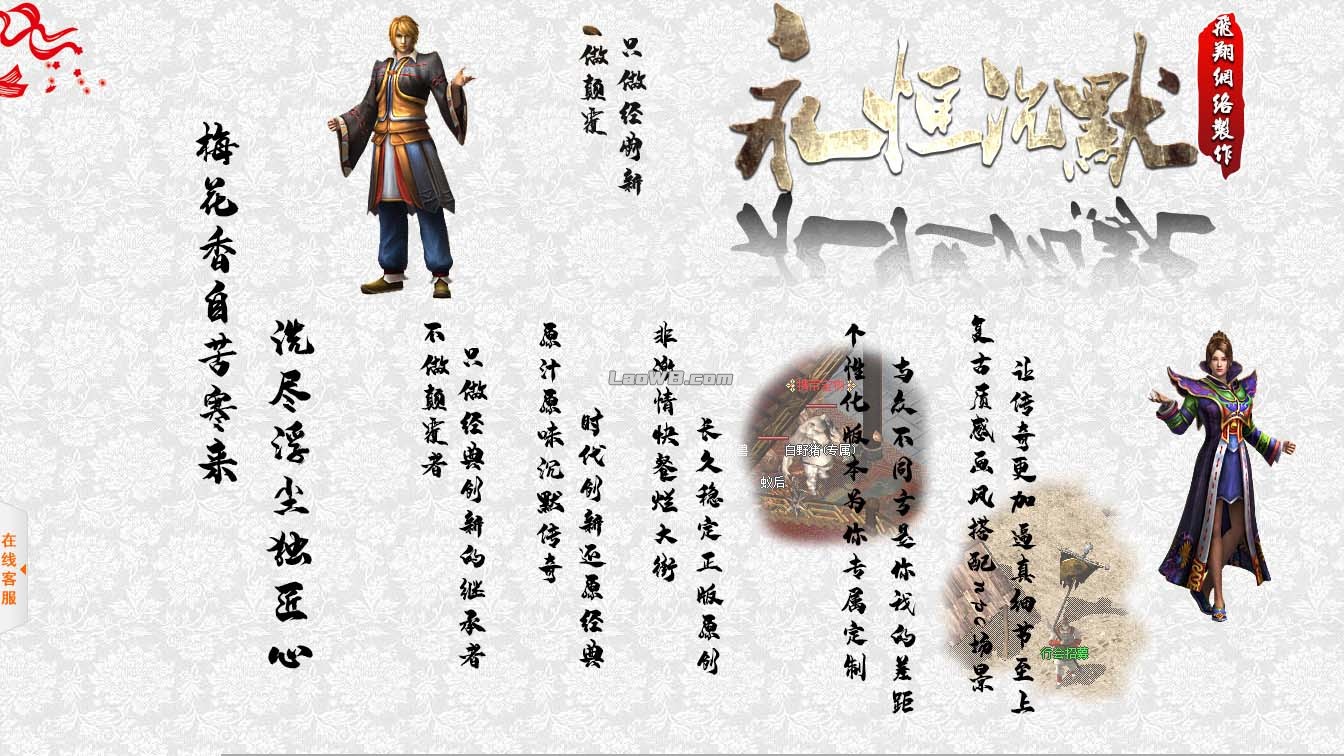 永恒沉默
飛翔網络製作
只做经典新
做颠覆
让传奇更加逼真细节至上
复古质感画风搭配npc场景
与众不同方是你我的差距
个性化版本为你专属定制
长久稳定正版原创
非激情快餐烂大街
时代创新还原经典
原汁原味沉默传奇
只做经典创新的继承者
不做颠覆者
洗尽浮尘独匠心
梅花香自苦寒来
白野猪(专属)
蚁后
行会招募
LaoWB.com
在线客服